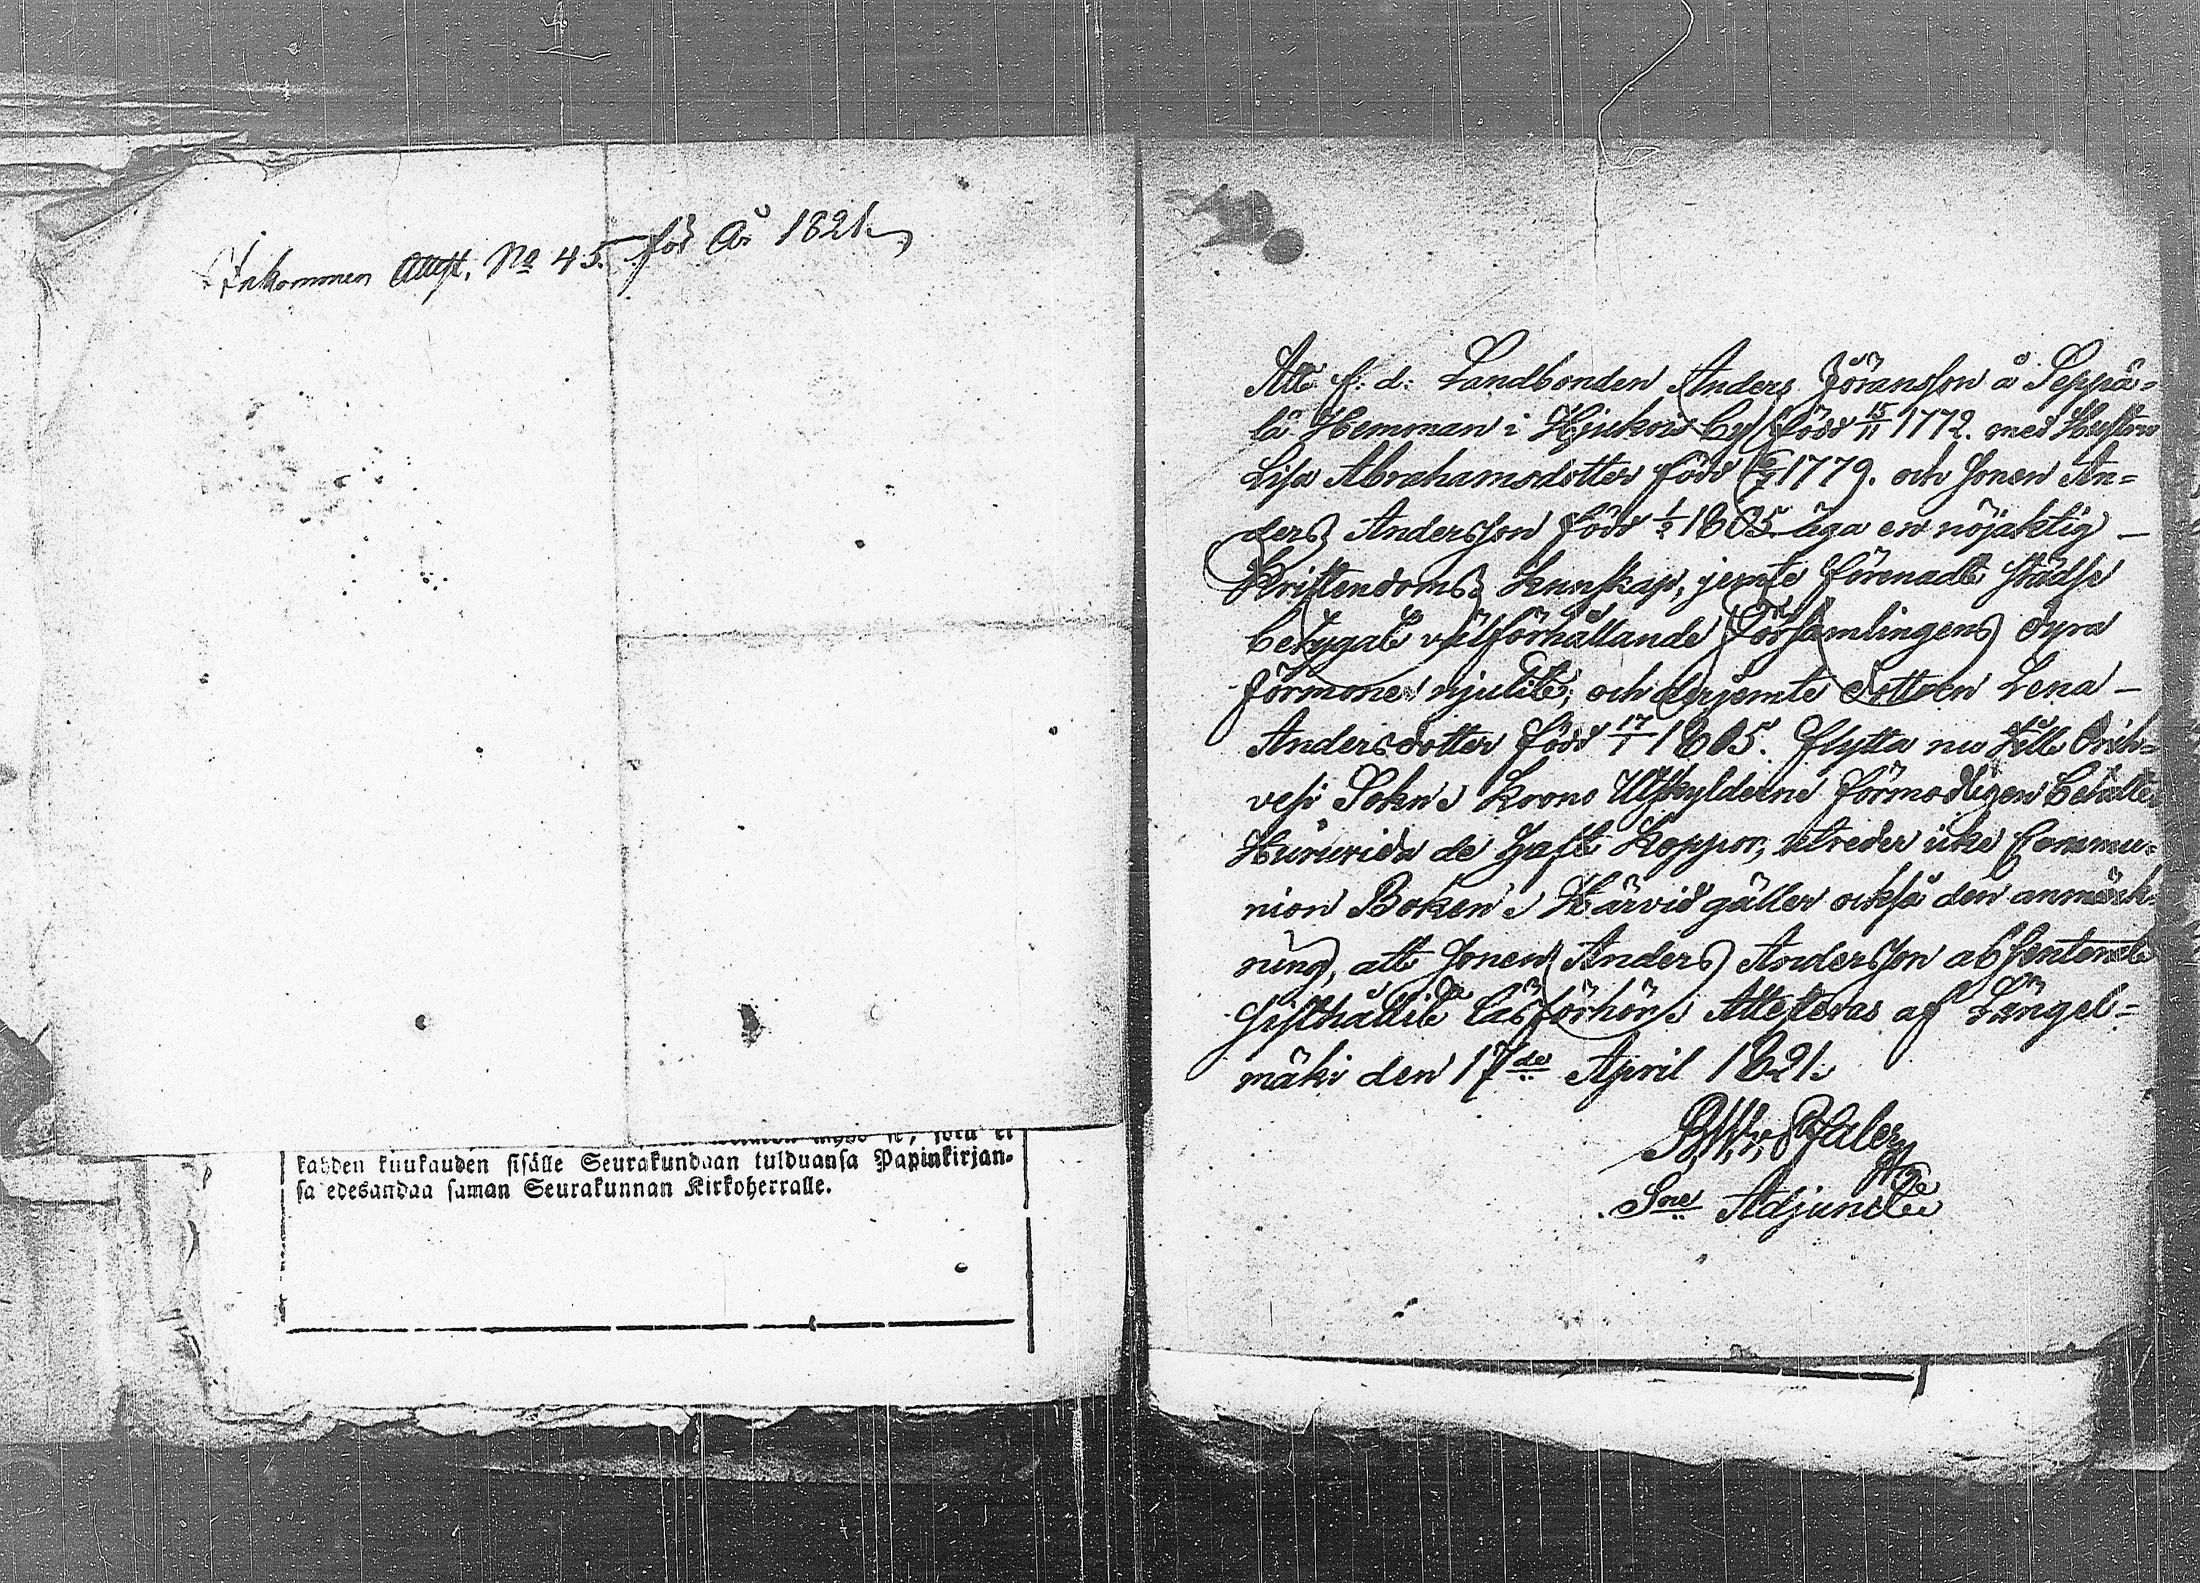 Inkommen Attest. No 45. för År 1821
kahden kuukauden sisälle Seurakundaan tulduansa Papinkirjan-
sa edesandaa saman Seurakunnan Kirkoherralle.
Att f: d: Landbonden Anders Jöransson å Seppä-
lä Hemman i Hjukois by född 15/11 1772. med Hustru
Lisa Abrahamsdotter född 1779. och Sonen An-
ders Andersson född 1/2 1805 äga en nöjaktig
Kristendoms kunskap, jemte förenadt städse
betygat välförhållande Församlingens dyra
förmoner njutit; och derjemte dottren Lena
Andersdotter född 17/1 1805. flytta nu till Orih-
vesi Sokn. Krono Utskylderne förmodligen betalte.
Huruvida de haft Koppor, utreder icke Commu-
nion Boken. Härvid gäller också den anmärk-
ning, att Sonen Anders Andersson absenterat
sisthållit Läsförhör. Attesteras af Längel-
mäki den 17de April 1821.
Adjunct